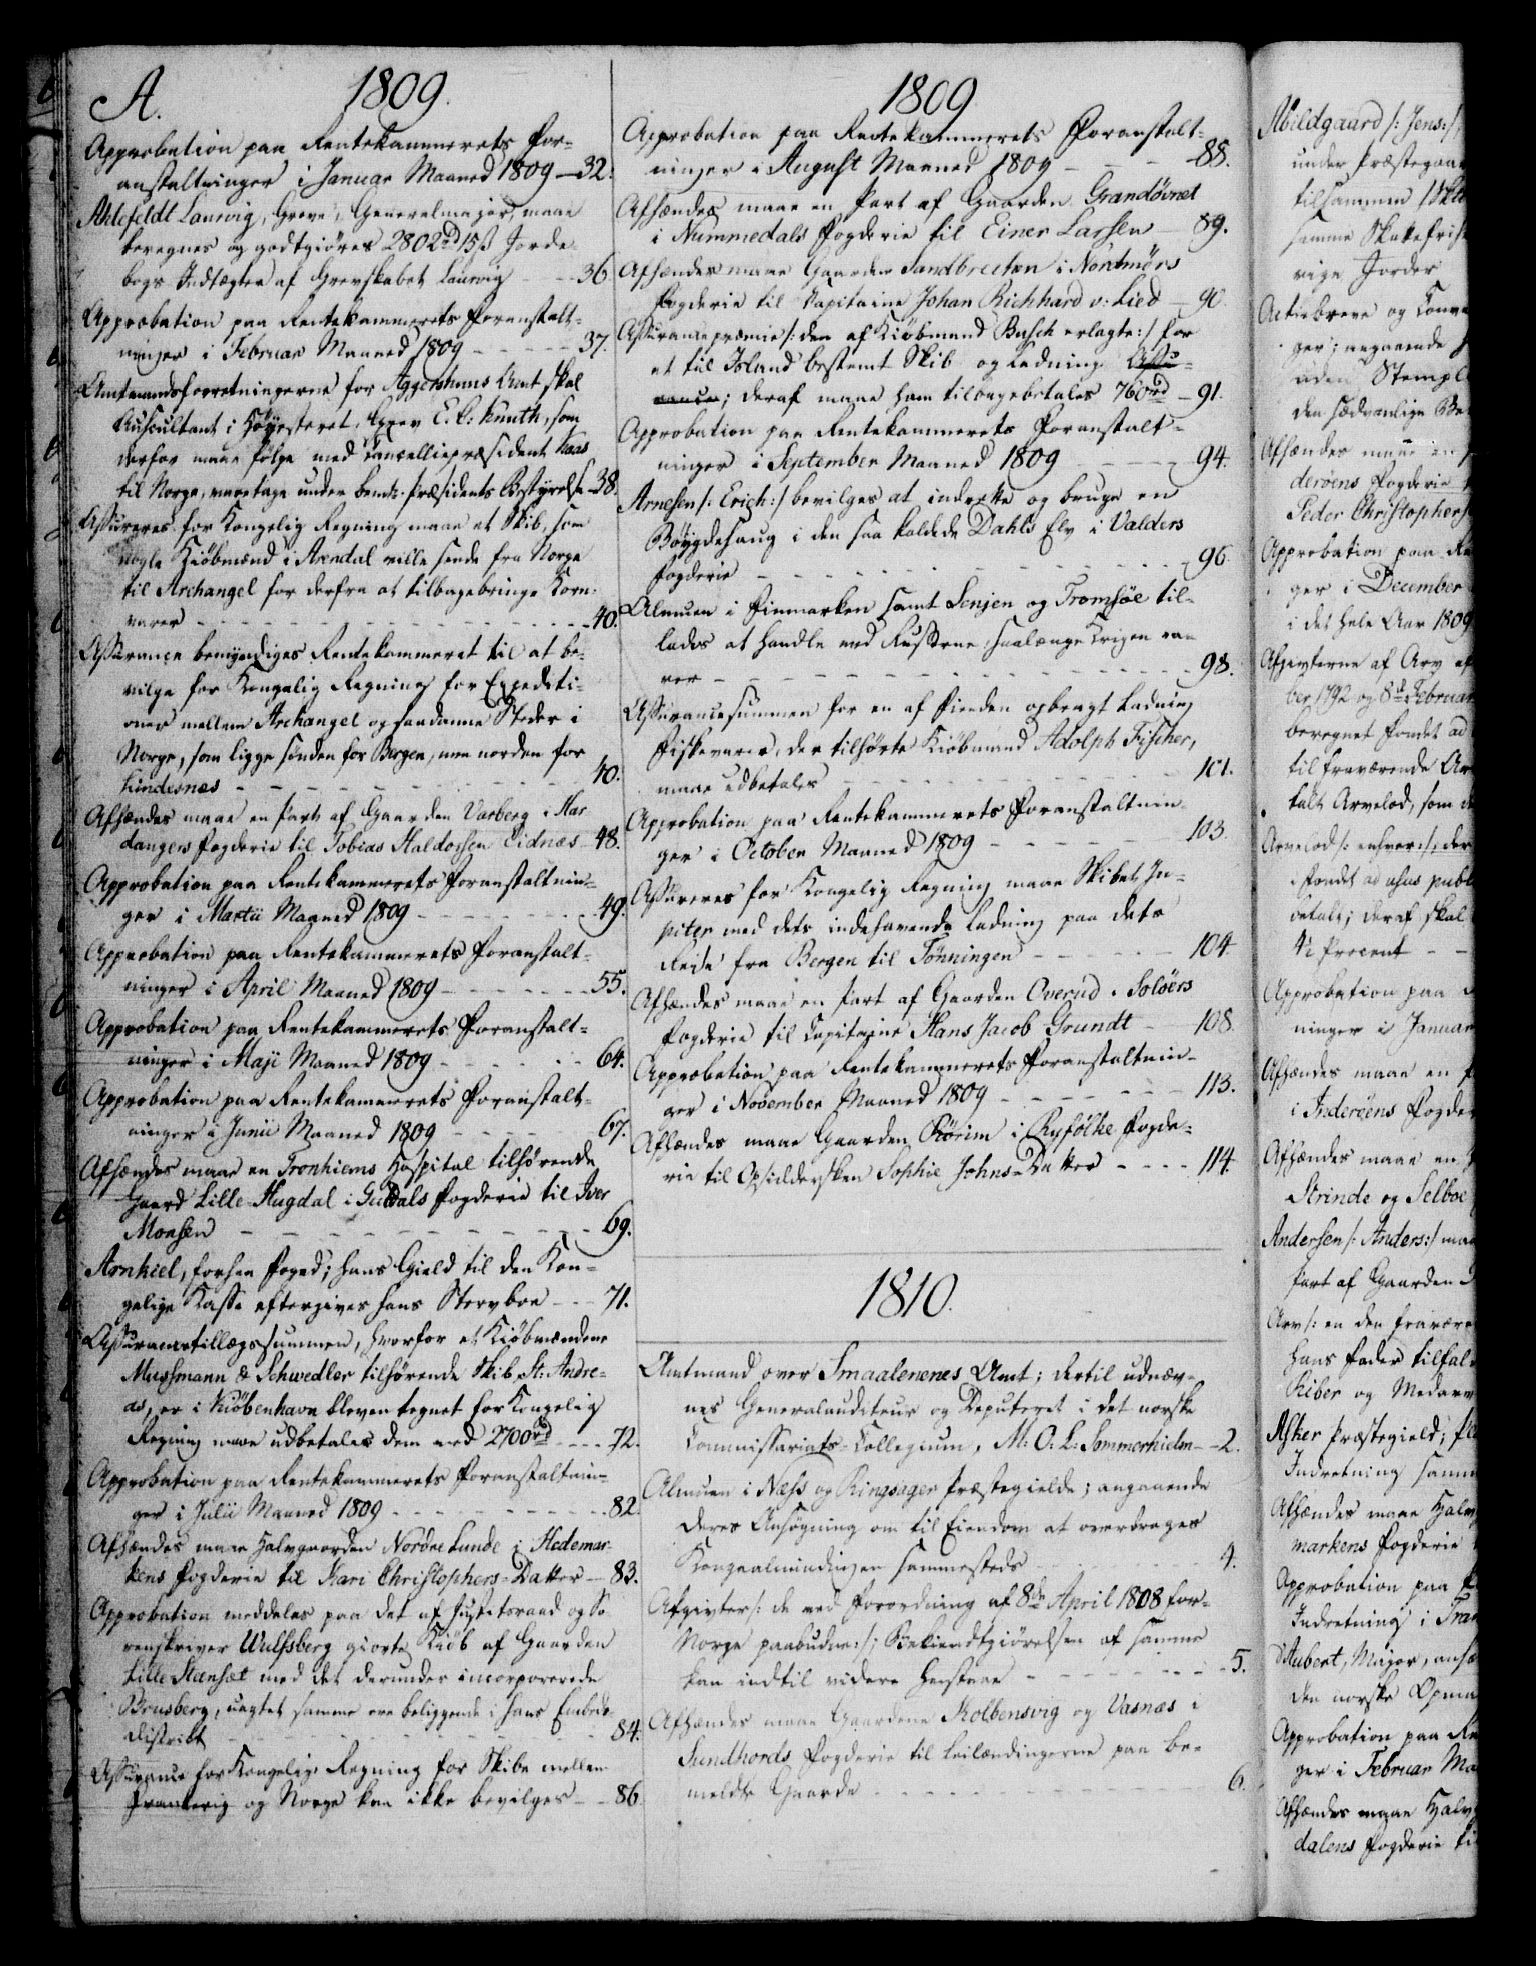 A. 1809.
Approbation paa Rentekammerets For-
anstaltninger i Januar Maaned 1809 — 32.
Ahlefeldt Laurvig, Greve, Generalmajor, maae
beregnes og godtgiøres 2802 rd 15 ß Jorde-
bogs Indtægter af Grevskabet Laurvig - - - 36
Approbation paa Rentekammerets Foranstalt-
ninger i Februar Maaned 1809 - - - - - 37.
Amtmandsforretningerne for Aggershuus Amt skal
Auscultant i Høyesteret, Greve E. C: Knuth, som
derfor maae følge med Cancelliepræsident Kaas
til Norge, varetage under bemte. Præsidents Bestyrelse 38.
Assureres for Kongelig Regning maae et Skib, som
nogle Kiøbmænd i Arendal ville sende fra Norge
til Archangel for derfra at tilbagebringe Korn-
varer - - - - - - - - - - - - 40.
Assurance bemyndiges Rentekammeret til at be-
vilge for Kongelig Regning for Expediti-
oner mellem Archangel og saadanne Steder i
Norge, som ligge sønden for Bergen, men norden for
Lindesnæs - - - - - - - - - - 40.
Afhændes maae en Part af Gaarden Varberg i Har-
dangers Fogderie til Tobias Haldorsen Eidnæs - 48.
Approbation paa Rentekammerets Foranstaltnin-
ger i Martii Maaned 1809 - - - - - - - 49.
Approbation paa Rentekammerets Foranstalt-
ninger i April Maaned 1809 - - - - - - - 55.
Approbation paa Rentekammerets Foranstalt-
ninger i Maji Maaned 1809 - - - - - - 64.
Approbation paa Rentekammerets Foranstalt-
ninger i Junii Maaned 1809 - - - - - 67.
Afhændes maae en Tronhiems Hospital tilhørende
Gaard Lille Hugdal i Guldals Fogderie til Iver
Monsen - - - - - - - - - - - 69.
Arnkiel, forhen Foged; hans Gield til den Kon-
gelige Kasse eftergives hans Stervboe - - - 71.
Assurancetillægssummen, hvorfor et Kiøbmændene
Mussmann & Schwedler tilhørende Skib, St: Andre-
as, er i Kiøbenhavn bleven tegnet for Kongelig
Regning maae udbetales dem med 2700 rd - - - - 72.
Approbation paa Rentekammerets Foranstaltnin-
ger i Julii Maaned 1809 - - - - - - - - - 82.
Afhændes maae Halvgaarden Nordre Lunde i Hedemar-
kens Fogderie til Kari Christophers-Datter — 83.
Approbation meddeles paa det af Justitsraad og So-
renskriver Wulfsberg giorte Kiøb af Gaarden
Lille Steensæt med det derunder incorporerede
Brusberg, uagtet samme ere beliggende i hans Embeds-
district - - - - - - - - - - - 84.
Assurance for Kongelig Regning for Skibe mellem
Frankerig og Norge kan ikke bevilges - - 86.
1809
Approbation paa Rentekammerets Foranstalt-
ninger i August Maaned 1809 - - - - 88.
Afhændes maae en Part af Gaarden Grandøvret
i Nummedals Fogderie til Einer Larssen - 89.
Afhændes maae Gaarden Sandbreeten i Nordmørs
Fogderie til Kapitaine Johan Richhard v: Lied — 90.
Assurancepræmie /: den af Kiøbmand Busch erlagte :/ for
et til Island bestemt Skib og Ladning Assu-
rance; deraf maae ham tilbagebetales 760 rd — 91.
Approbation paa Rentekammerets Foranstalt-
ninger i September Maaned 1809 - - - - 94.
Arnesen /: Erich :/ bevilges at indrette og bruge en
Bøygdesaug i den saa kaldede Dahls Elv i Valders
Fogderie - - - - - - - - - - - 96.
Almuen i Finmarken samt Senjen og Tromsøe til-
lades at handle med Russerne saalænge Krigen va-
rer - - - - - - - - - - - - - 98.
Assurancesummen for en af Fienden opbragt Ladning
Fiskevarer, der tilhørte Kiøbmand Adolph Fischer,
maae udbetales - - - - - - - - - 101.
Approbation paa Rentekammerets Foranstaltnin-
ger i October Maaned 1809 - - - - - - 103.
Assureres for Kongelig Regning maae Skibet Ju-
piter med dets indehavende Ladning paa dets
Reise fra Bergen til Tønningen - - - - - - 104.
Afhændes maae en Part af Gaarden Overud i Soløers
Fogderie til Capitaine Hans Jacob Grundt - 108.
Approbation paa Rentekammerets Foranstaltnin-
ger i November Maaned 1809 - - - - - - - 113.
Afhændes maae Gaarden Rørim i Ryfølke Fogde-
rie til Opsiddersken Sophie Johns-Datter - - - - 114.
1810.
Amtmand over Smaalenenes Amt; dertil udnæv-
nes Generalauditeur og Deputeret i det norske
Commissariats-Collegium, M: O: L: Sommerhielm - - 2.
Almuen i Næss og Ringsager Præstegielde; angaaende
deres Ansøgning om til Eiendom at overdrages
Kongealmindingen sammesteds - - - - - - 4.
Afgivter /: de ved Forordning af 8de April 1808 for
Norge paabudne :/; Bekiendtgiørelsen af samme
kan indtil videre henstaae - - - - - - - - 5.
Afhændes maae Gaardene Kolbensvig og Vasnæs i
Sundhords Fogderie til Leilændingerne paa be-
meldte Gaarde - - - - - - - - - - 6.
Abildgaard /: Jens :/,
under Præstegaar
tilsammen
samme Skattefrihe
rige Jorder
Actiebreve og Conve
ger; angaaende
uden Stempl
den sædvanlige Be
Afhændes maae en
derøens Fogderie
Peder Christophers
Approbation paa Re
ger i December
i det hele Aar 1809
Afgivterne af Arv af
ber 1792 og 8de Februar
beregnet Fondet ad
til fraværende Ar
falt Arvelod, som
Arvelod /: enhver :/, der
Fondet ad usus publ
betalt; deraf skal
4½ Procent - -
Approbation paa
ninger i Januar
Afhændes maae en
i Inderøens Fogder
Afhændes maae en
Strinde og Selboe
Andersen /: Anders :/ maae
Part af Gaarden
Arv /: en den fravære
hans Fader tilfal
Riber og Medarv
Asker Præstegield;
Indretning samm
Afhændes maae Halv
markens Fogderie
Approbation paa
Indretning i Tran
d'Aubert, Major, ansæ
den norske Opma
Approbation paa Re
ger i Februar Ma
Afhændes maae Halv
dalens Fogderie til